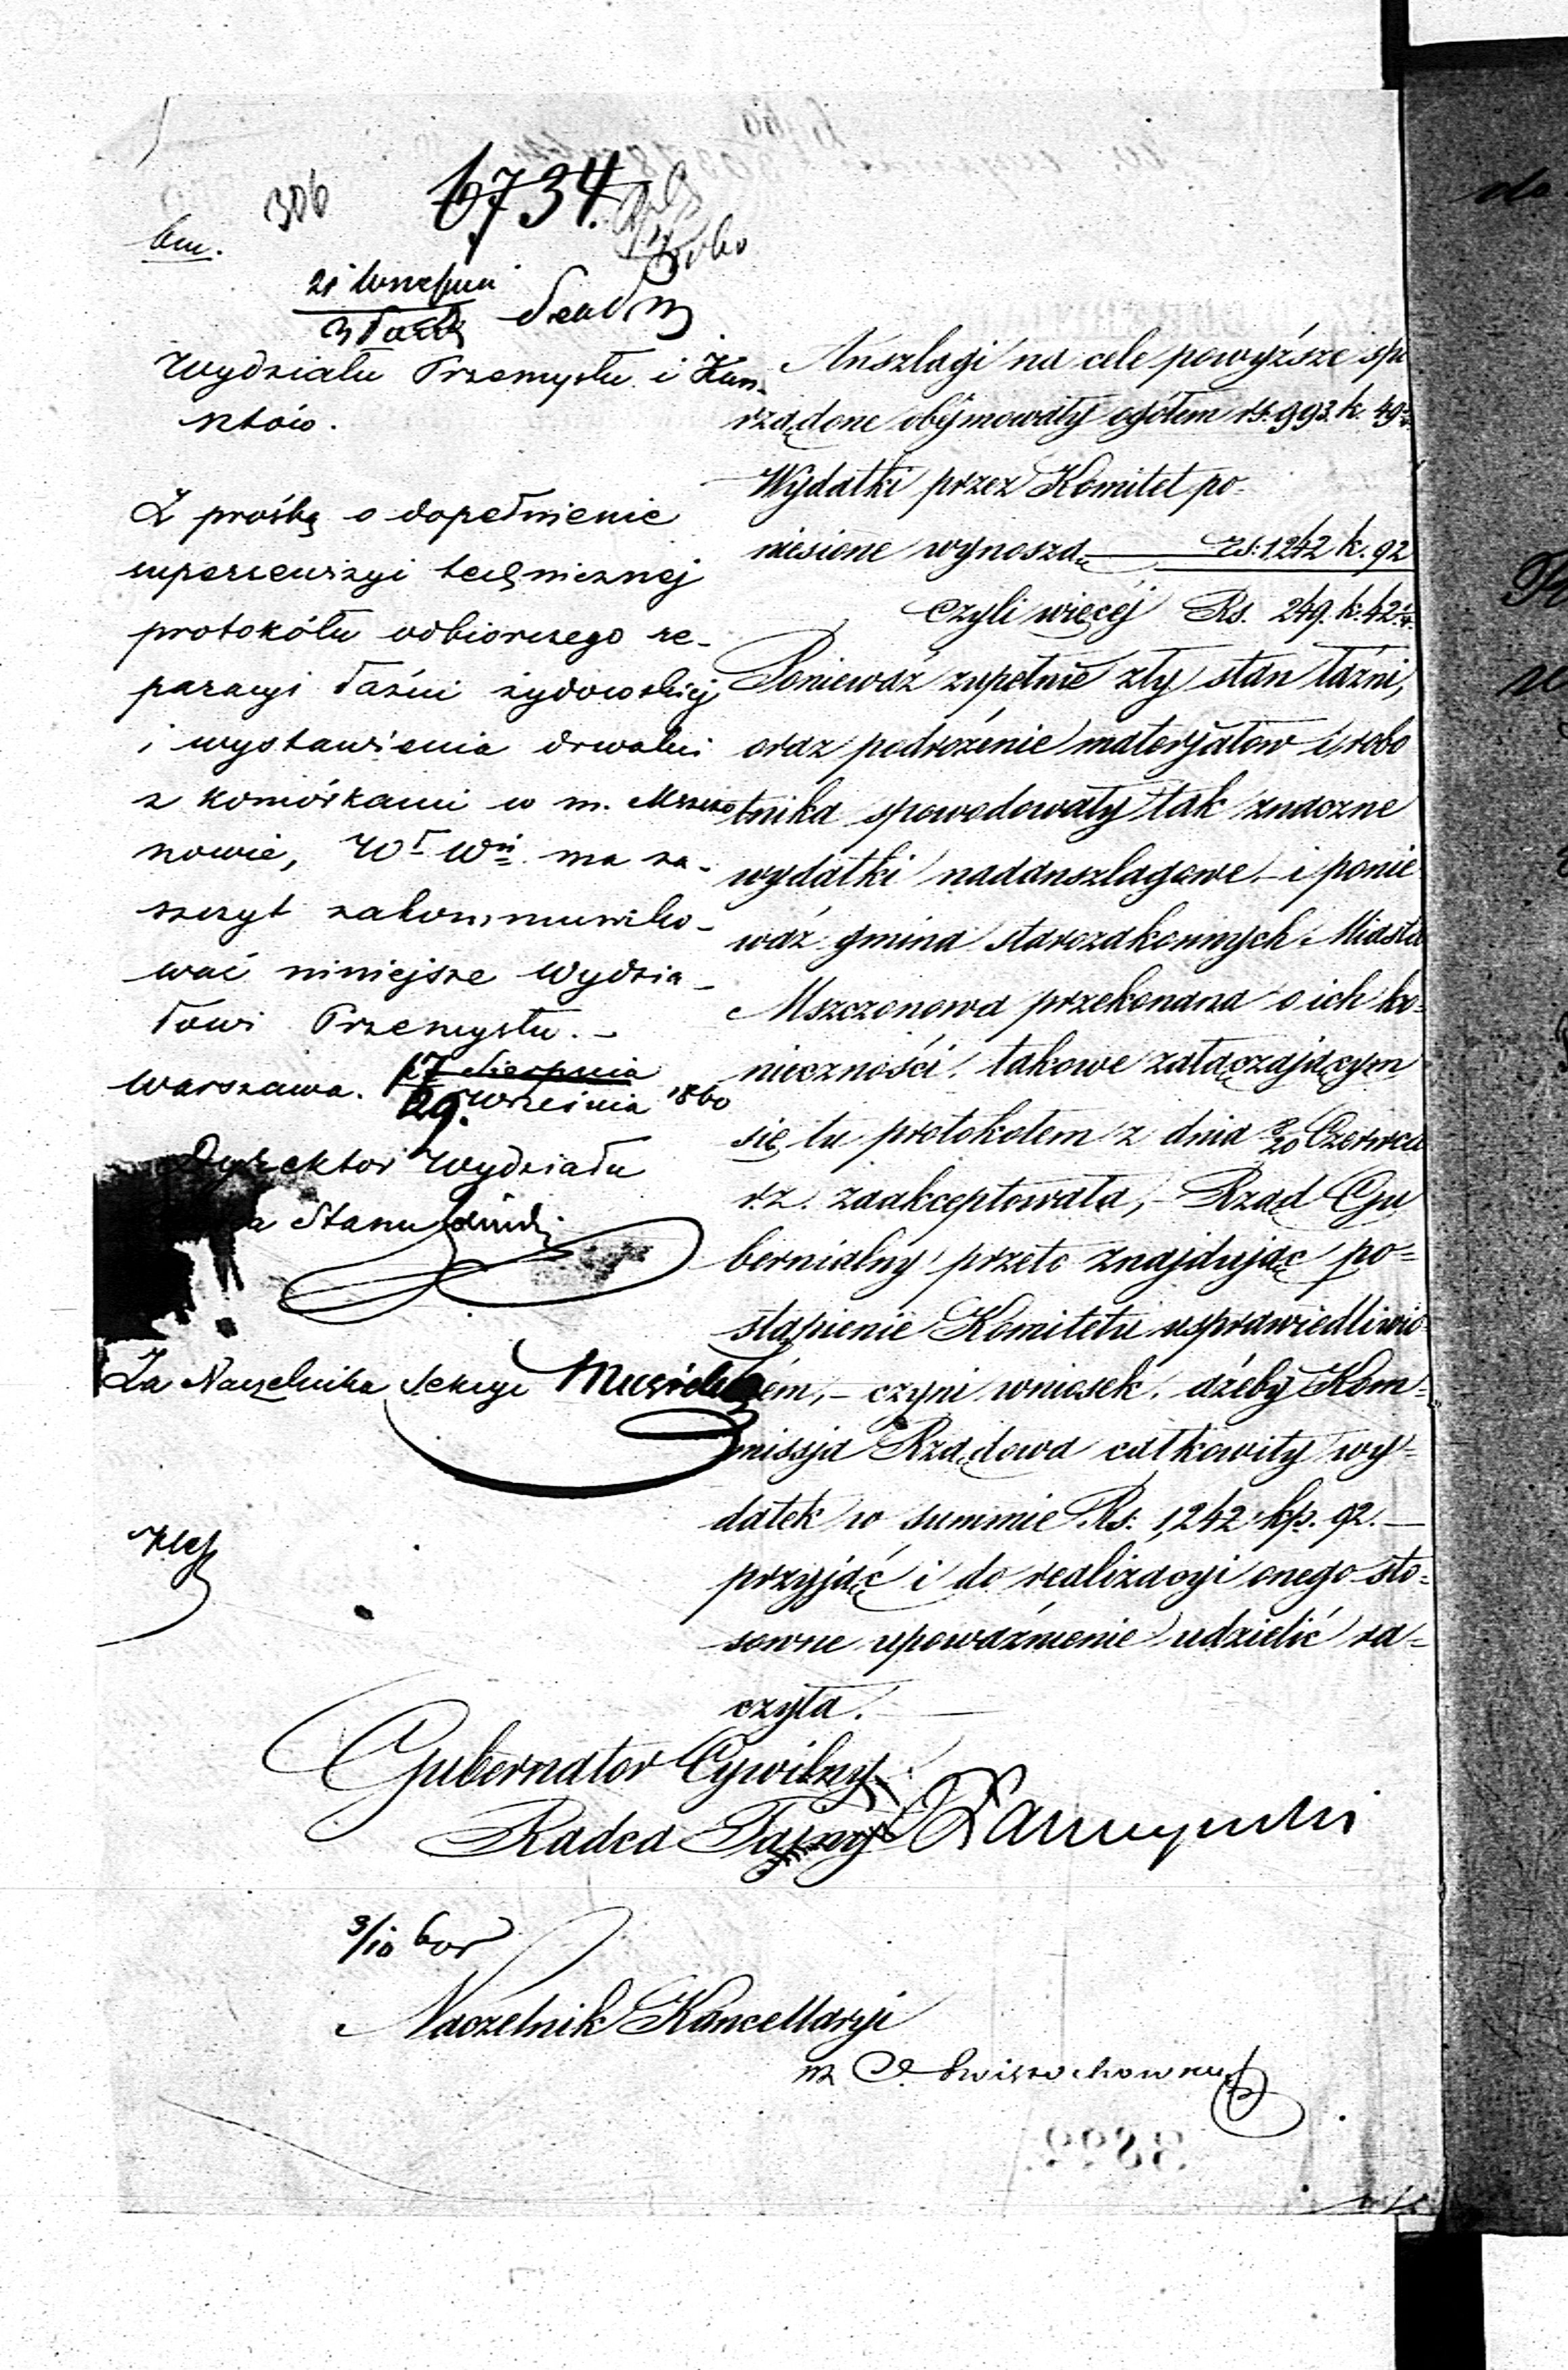 306
6734.
bm.
21 Września
Wydziału Przemysłu i Kun-
sztów.
Z prośbą o dopełnienie
superrewizyi technicznej
protokółu odbiorczego re-
paracyi łaźni żydowskiej
i wystawienia drwalni
z komórkami w m. Mszczo
nowie, Wł Wń ma za-
szczyt zakommuniko-
wać niniejsze Wydzia-
łowi Przemysłu.-
Warszawa. 17 Sierpnia
29. Września 1860
Dyrektor Wydziału
Stanu
Za Naczelnika Sekcyi
Anszlagi na cele powyższe spo
rządone obejmowały ogółem rs. 993. k. 49½.
Wydatki przez Komitet po=
niesione wynoszą rs: 1242 k. 92
Czyli więcej Rs. 249. k. 42½.
Ponieważ zupełnie zły stan łaźni,
oraz podrożenie materjałów i robo
tnika spowodowały tak znaczne
wydatki nadanszlagowe - i ponie
waż gmina starozakonnych Miasta
Mszczonowa przekonana o ich ko=
nieczności takowe załączającym
się tu protokołem z dnia 8/20 Czerwca
r.z. zaakceptowała, - Rząd Gu
bernialny przeto znajdując po=
stąpienie Komitetu usprawiedliwio
ném, - czyni wniosek, ażeby Kom=
missja Rządowa całkowity wy=
datek w summie Rs: 1,242 kp. 92. -
przyjąć i do realizacyi onego sto=
sowne upoważnienie udzielić ra=
czyła.
Gubernator Cywilny
Radca Tajny Łaszczyński
9/10
Naczelnik Kancellaryi